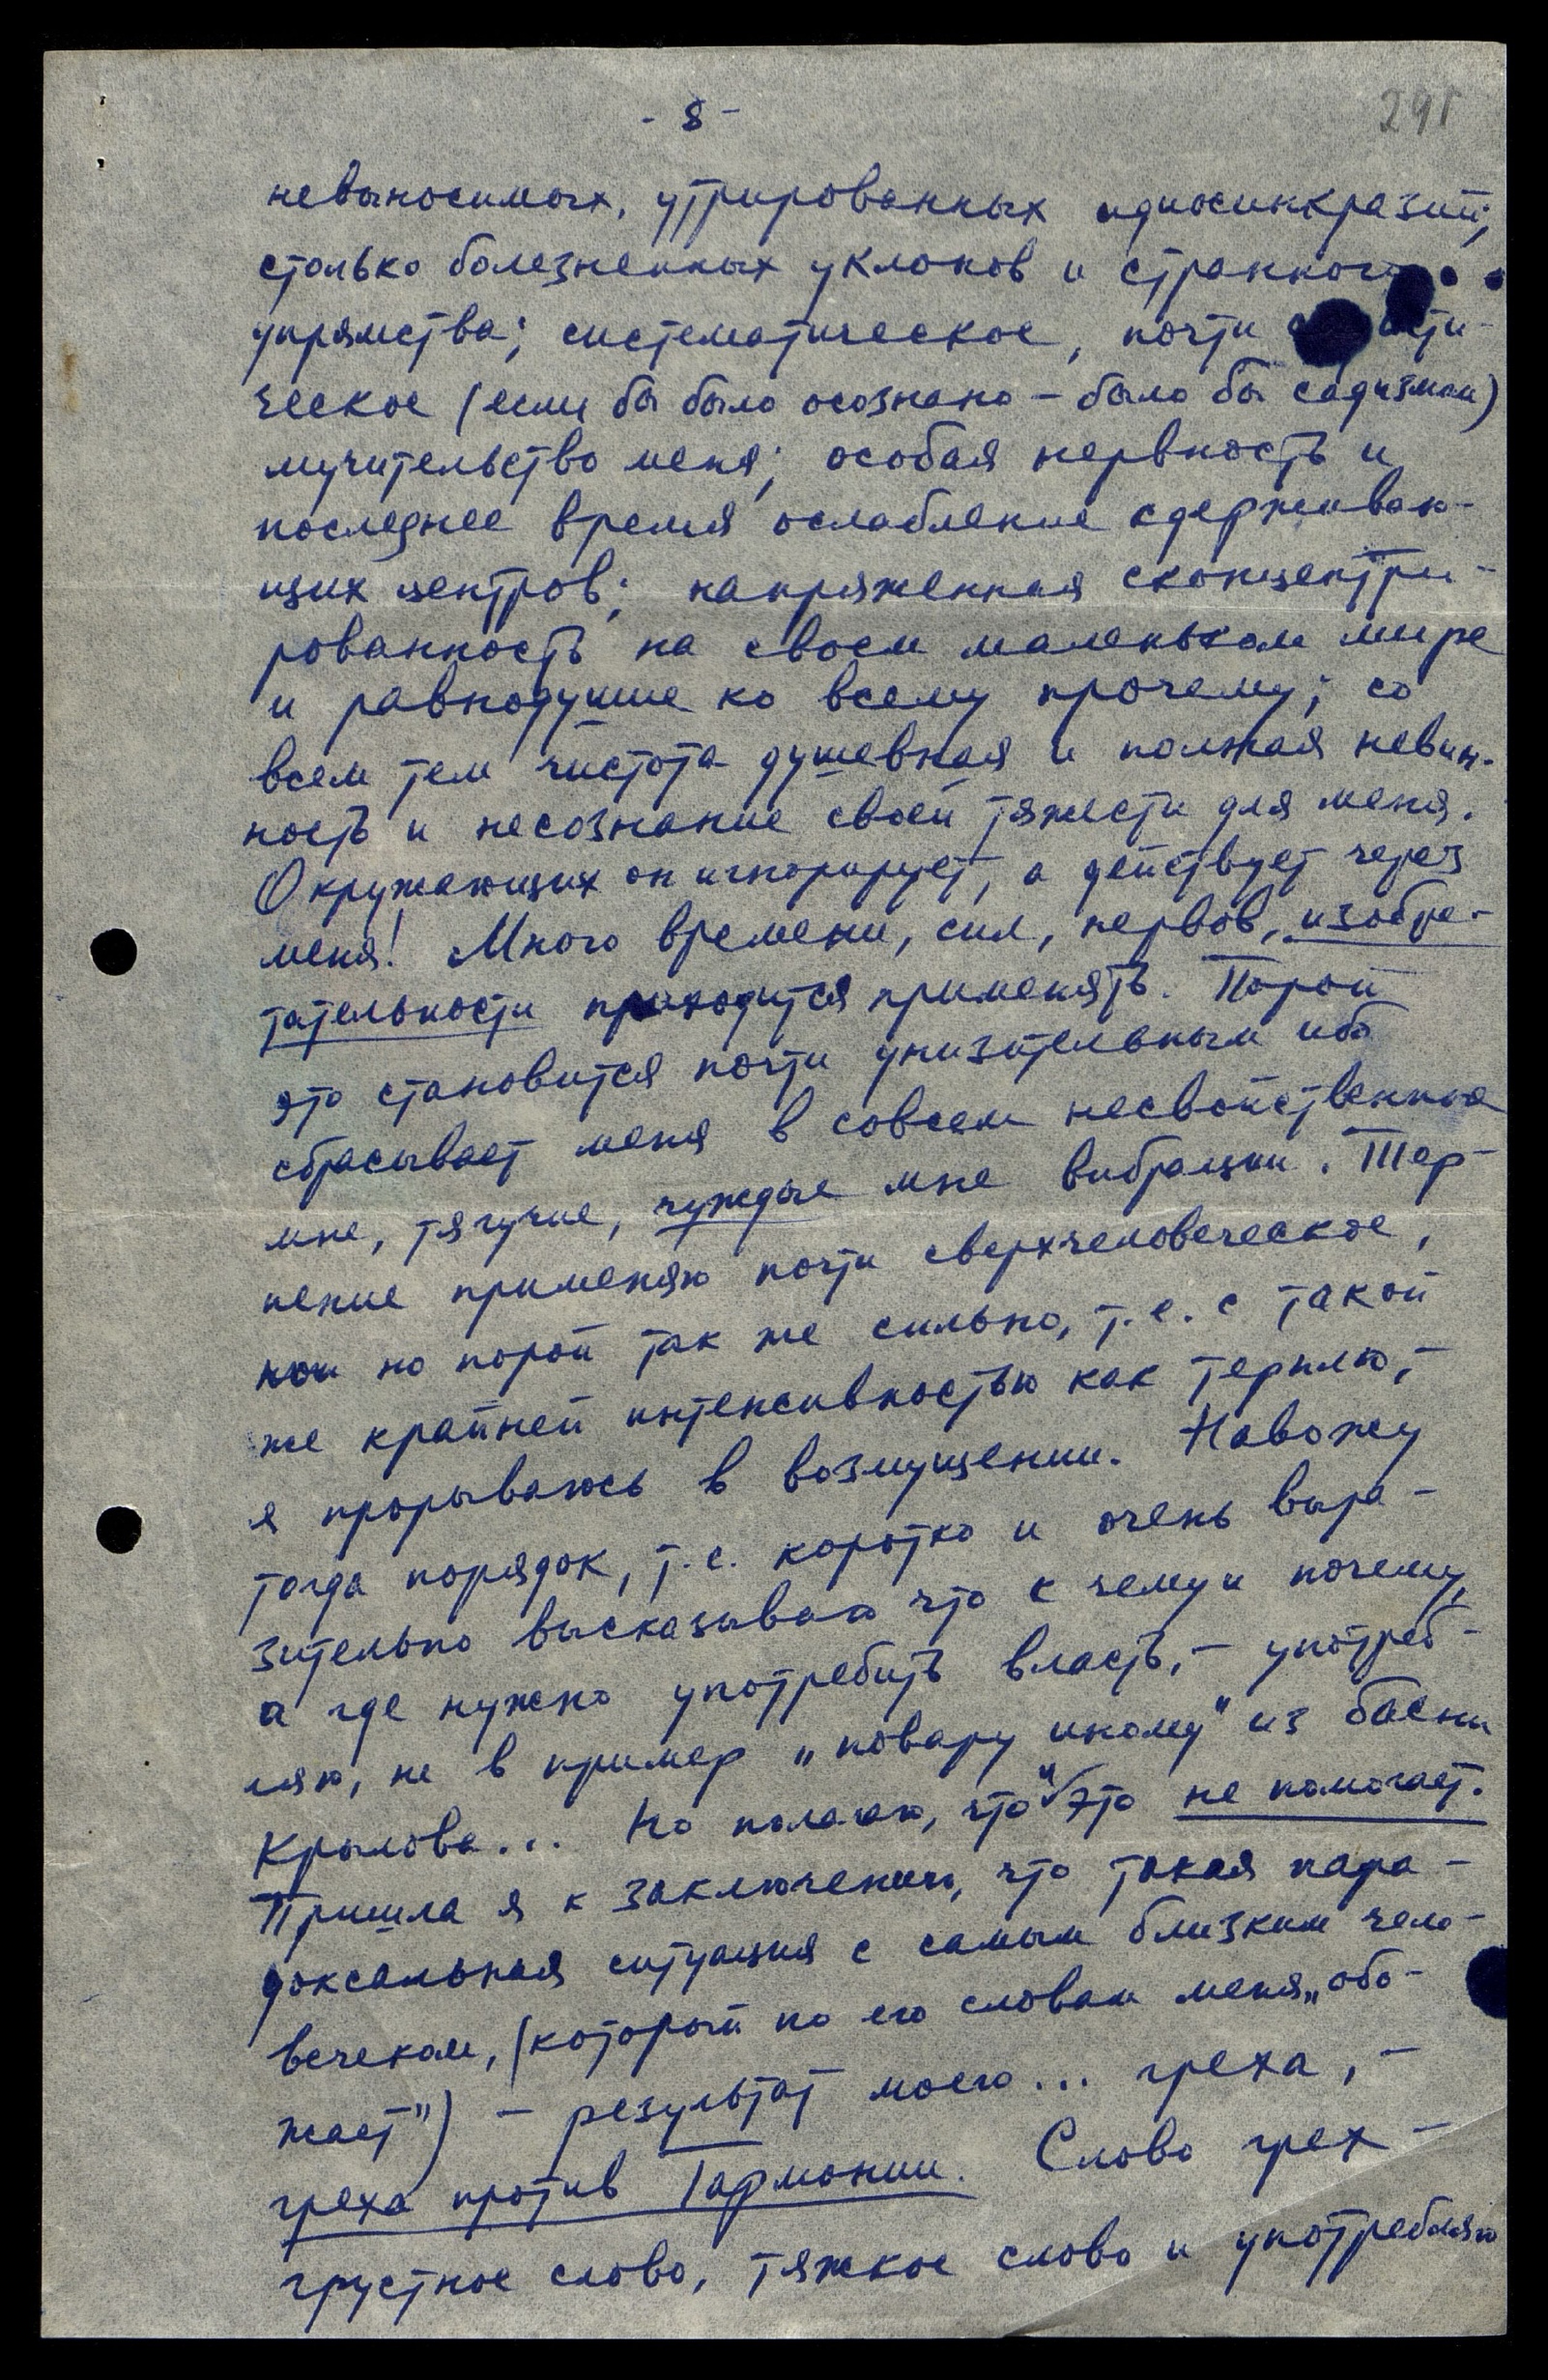 - 8 -
291
невыносимых, утрированных идиосинкразий,
столько болезненных уклонов и странного
упрямства; систематическое, почти
ческое (если бы было осознано – было бы садизмом)
мучительство меня; особая нервность и
последнее время ослабление сдерживаю-
щих центров; напряженная сконцентри-
рованность на своем маленьком мире
и равнодушие ко всему прочему; со
всем тем чистота душевная и полная невин-
ность и несознание своей тяжести для меня.
Окружающих он игнорирует, а действует через
меня! Много времени, сил, нервов, изобре-
тательности приходится применять. Порой
это становится почти унизительным ибо
сбрасывает меня в совсем несвойственные
мне, тягучие, чуждые мне вибрации. Тер-
пение применяю почти сверхчеловеческое,
но порой так же сильно, т.е. с такой
же крайней интенсивностью как терплю, –
я прорываюсь в возмущении. Навожу
тогда порядок, т.е. коротко и очень выра-
зительно высказываю что к чему и почему,
а где нужно употребить власть, – употреб-
ляю, не в пример „повару иному" из басни
Крылова... Но полагаю, что и это не помогает.
Пришла я к заключению, что такая пара-
доксальная ситуация с самым близким чело-
вечеком, (который по его словам меня „обо-
жает") – результат моего... греха, –
греха против Гармонии. Слово грех –
грустное слово, тяжкое слово и употребляю